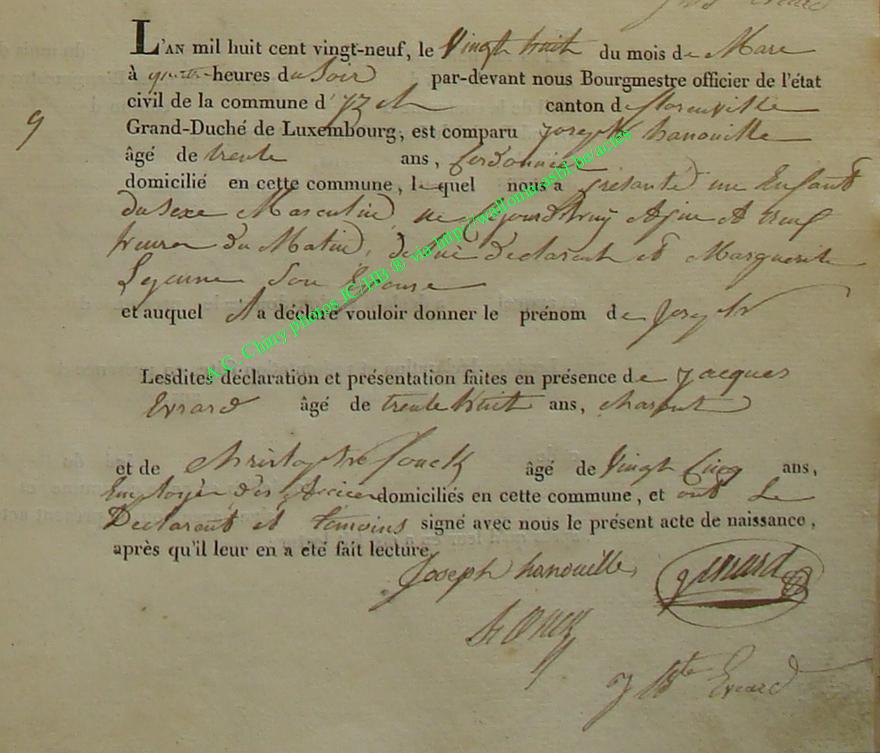 L'AN mil huit cent vingt-neuf, le Vingt huit du mois de Mars
à quatre heures du Soir par-devant nous Bourgmestre officier de l'état
civil de la commune d' canton de florenville
9
Grand-Duché de Luxembourg, est comparu joseph hanouille
âgé de trente ans, Cordonnier
domicilié en cette commune, lequel nous a présenté un Enfant
du Sexe Masculin, né aujourd'huy et neuf
heures du Matin, de lui déclarant et Marguerite
Lejeune Son Epouse
et auquel il a déclaré vouloir donner le prénom de joseph
Lesdites déclaration et présentation faites en présence de jacques
Evrard âgé de trente huit ans,
et de christophe âgé de Vingt Cinq ans,
Employér des domiciliés en cette commune, et ont Le
Déclarant et témoins signé avec nous le présent acte de naissance,
après qu'il leur en a été fait lecture
Joseph hanouille
jevrard
J Bte Evrard
A.C. Chiny photos IC/HB ® via http://wallonia.asbl.be/actes